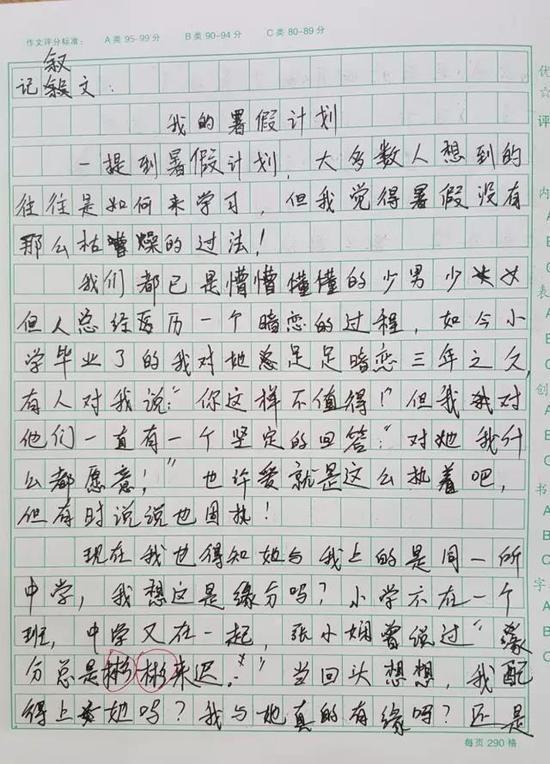 作文评分标准: A类 95-99分 B类 90-94分 C类 80-89分
记叙文:
我的暑假计划
一提到暑假计划,大多数人想到的
往往是如何来学习,但我觉得暑假没有
那么枯燥的过法!
我们都已是懵懵懂懂的少男少女
但人总经历一个暗恋的过程,如今小
学毕业了的我对她总足足暗恋三年之久,
有人对我说:“你这样不值得!”但我对
他们一直有一个坚定的回答:“对她我什
么都愿意!”也许爱就是这么执着吧,
但有时说说也固执!
现在我也得知她与我上的是同一所
中学,我想这是缘分吗?小学不在一个
班,中学又在一起,张小娴曾说过“缘
分总是彬彬来迟。”当回头想想,我配
得上她吗?我与她真的有缘吗?还是
每页 290 格
优
☆
评
内
A
B
C
表
A
B
C
创
A
B
书
A
B
C
字
A
B
C